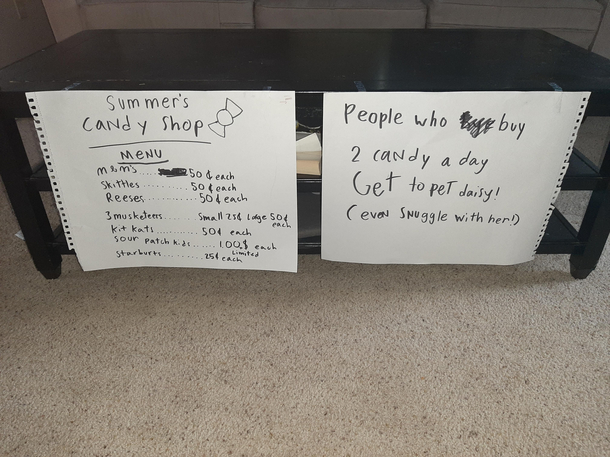 Summer's
candy shop
Menu
m&m's ........ 50¢ each
Skittles .......... 50¢ each
Reeses ........... 50¢ each
3 musketeers ....... Small 25¢ Large 50¢
each
Kit Kats ......... 50¢ each
Sour patch kids ...... 1.00$ each
Limited
Starburts ......... 25¢ each
People who buy
2 candy a day
Get to pet daisy!
(even snuggle with her!)